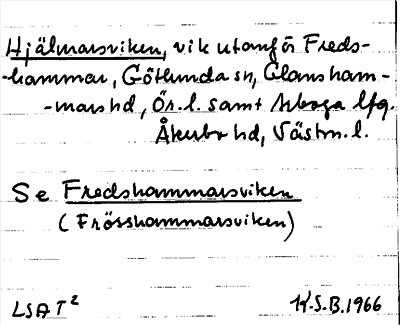 Hjälmarsviken, vik utanför Freds-
-hammar, Götlunda sn, Glansham-
-mars hd, Ör. l. samt Arboga lfg.
Åkerbo hd, Västm. l.
Se Fredshammarsviken
(Frösshammarsviken)
LSAT² K.S.B. 1966